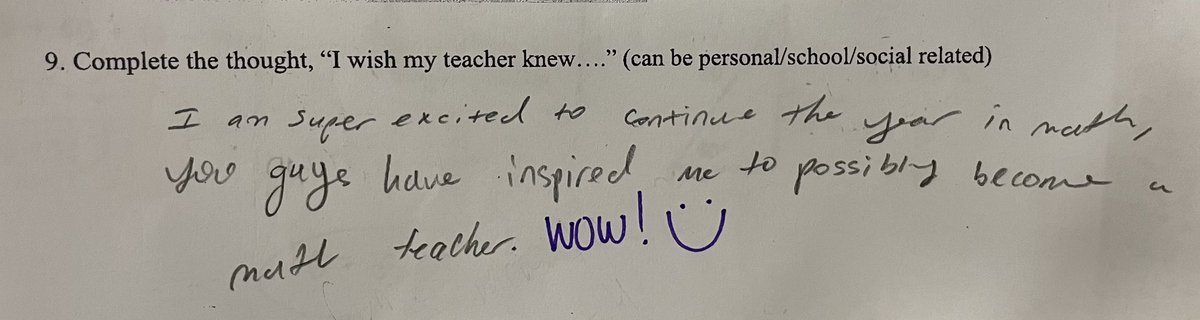 9. Complete the thought, “I wish my teacher knew….” (can be personal/school/social related)
I am super excited to continue the year in math,
you guys have inspired me to possibly become a
math teacher. WOW! Ü